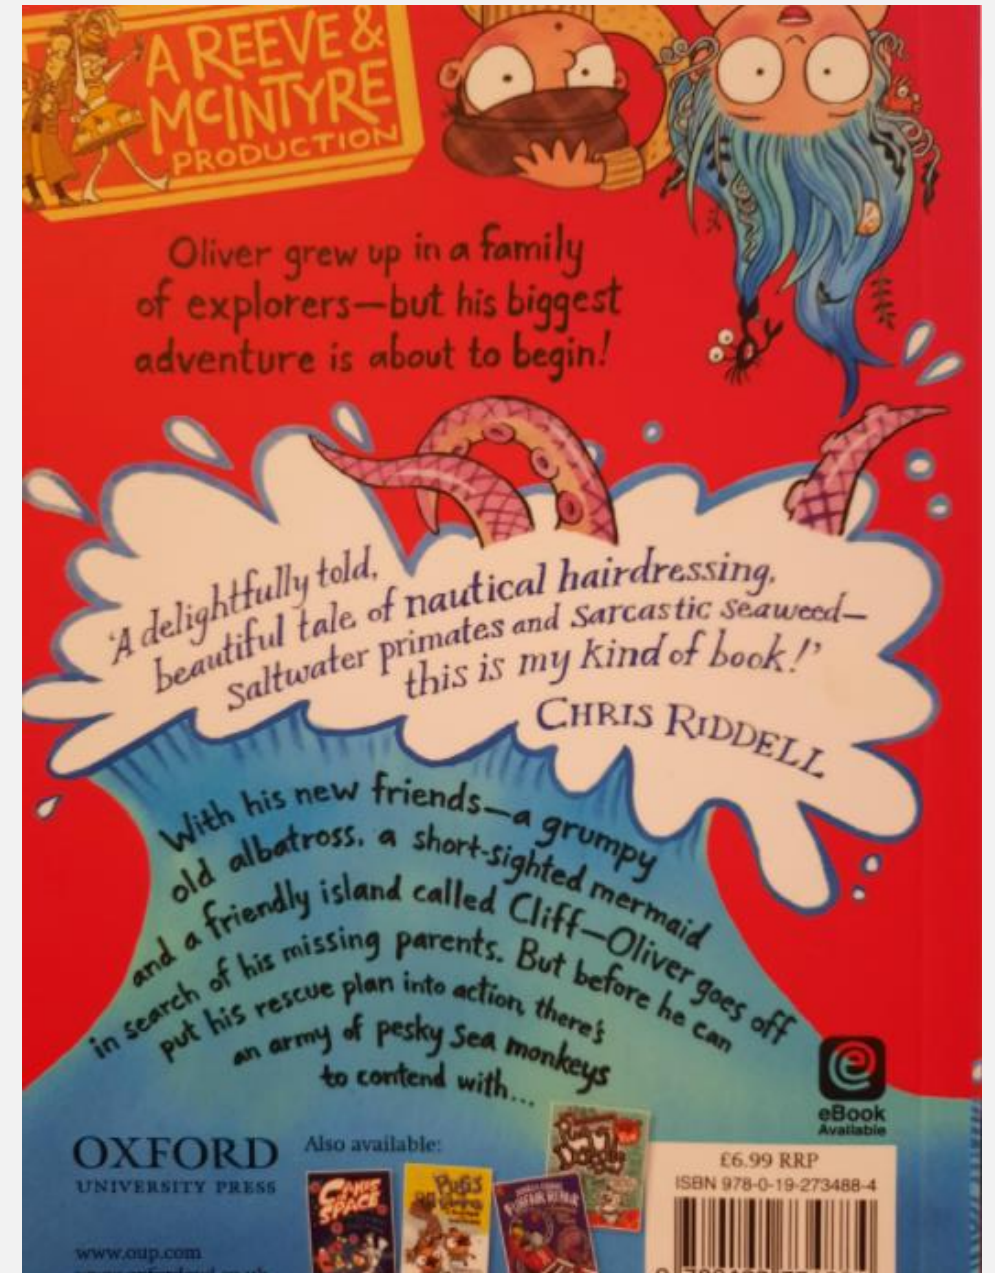 A REEVE &
MCINTYRE
PRODUCTION
Oliver grew up in a family
of explorers—but his biggest
adventure is about to begin!
'A delightfully told,
beautiful tale of nautical hairdressing,
saltwater primates and sarcastic seaweed—
this is my kind of book!'
CHRIS RIDDELL
With his new friends—a grumpy
old albatross, a short-sighted mermaid
and a friendly island called Cliff—Oliver goes off
in search of his missing parents. But before he can
put his rescue plan into action, there's
an army of pesky sea monkeys
to contend with...
eBook
Available
OXFORD
UNIVERSITY PRESS
www.oup.com
Also available:
CAKES
SPACE
£6.99 RRP
ISBN 978-0-19-273488-4